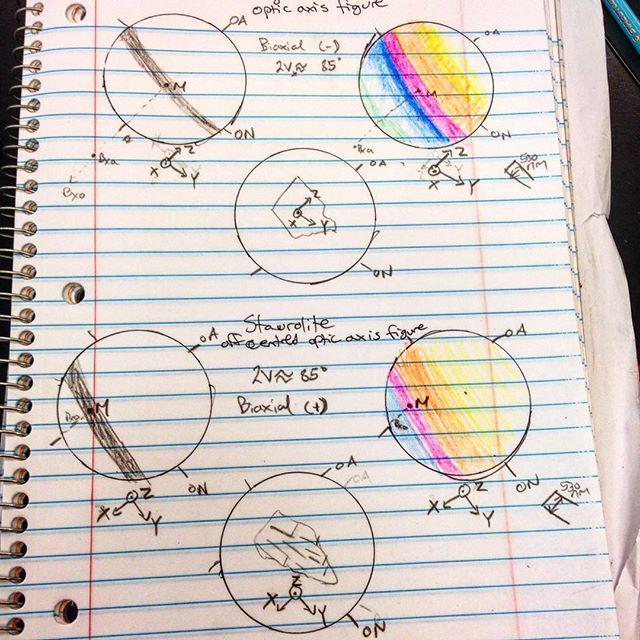 optic axis figure
OA
OA
Biaxial (-)
2V≈ 85°
M
M
ON
ON
Bxa
Bxa
Bxo
Z
X
Y
Z
X
Y
530
nm
OA
Z
X
Y
ON
Staurolite
offcentered optic axis figure
OA
OA
2V≈ 85°
Biaxial (+)
M
M
Bxa
Bxa
ON
ON
Z
X
Y
Z
X
Y
530
nm
OA
OA
Z
X
Y
ON